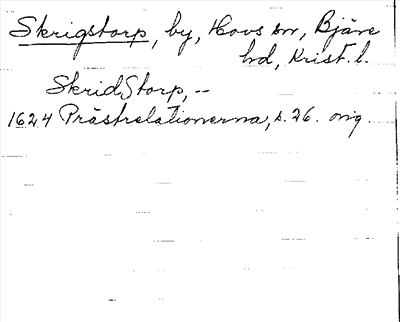 Skrigstorp, by, Hovs sn, Bjäre
hd, Krist. l.
SkridStorp, --
1624 Prästrelationerna, s. 26. orig.